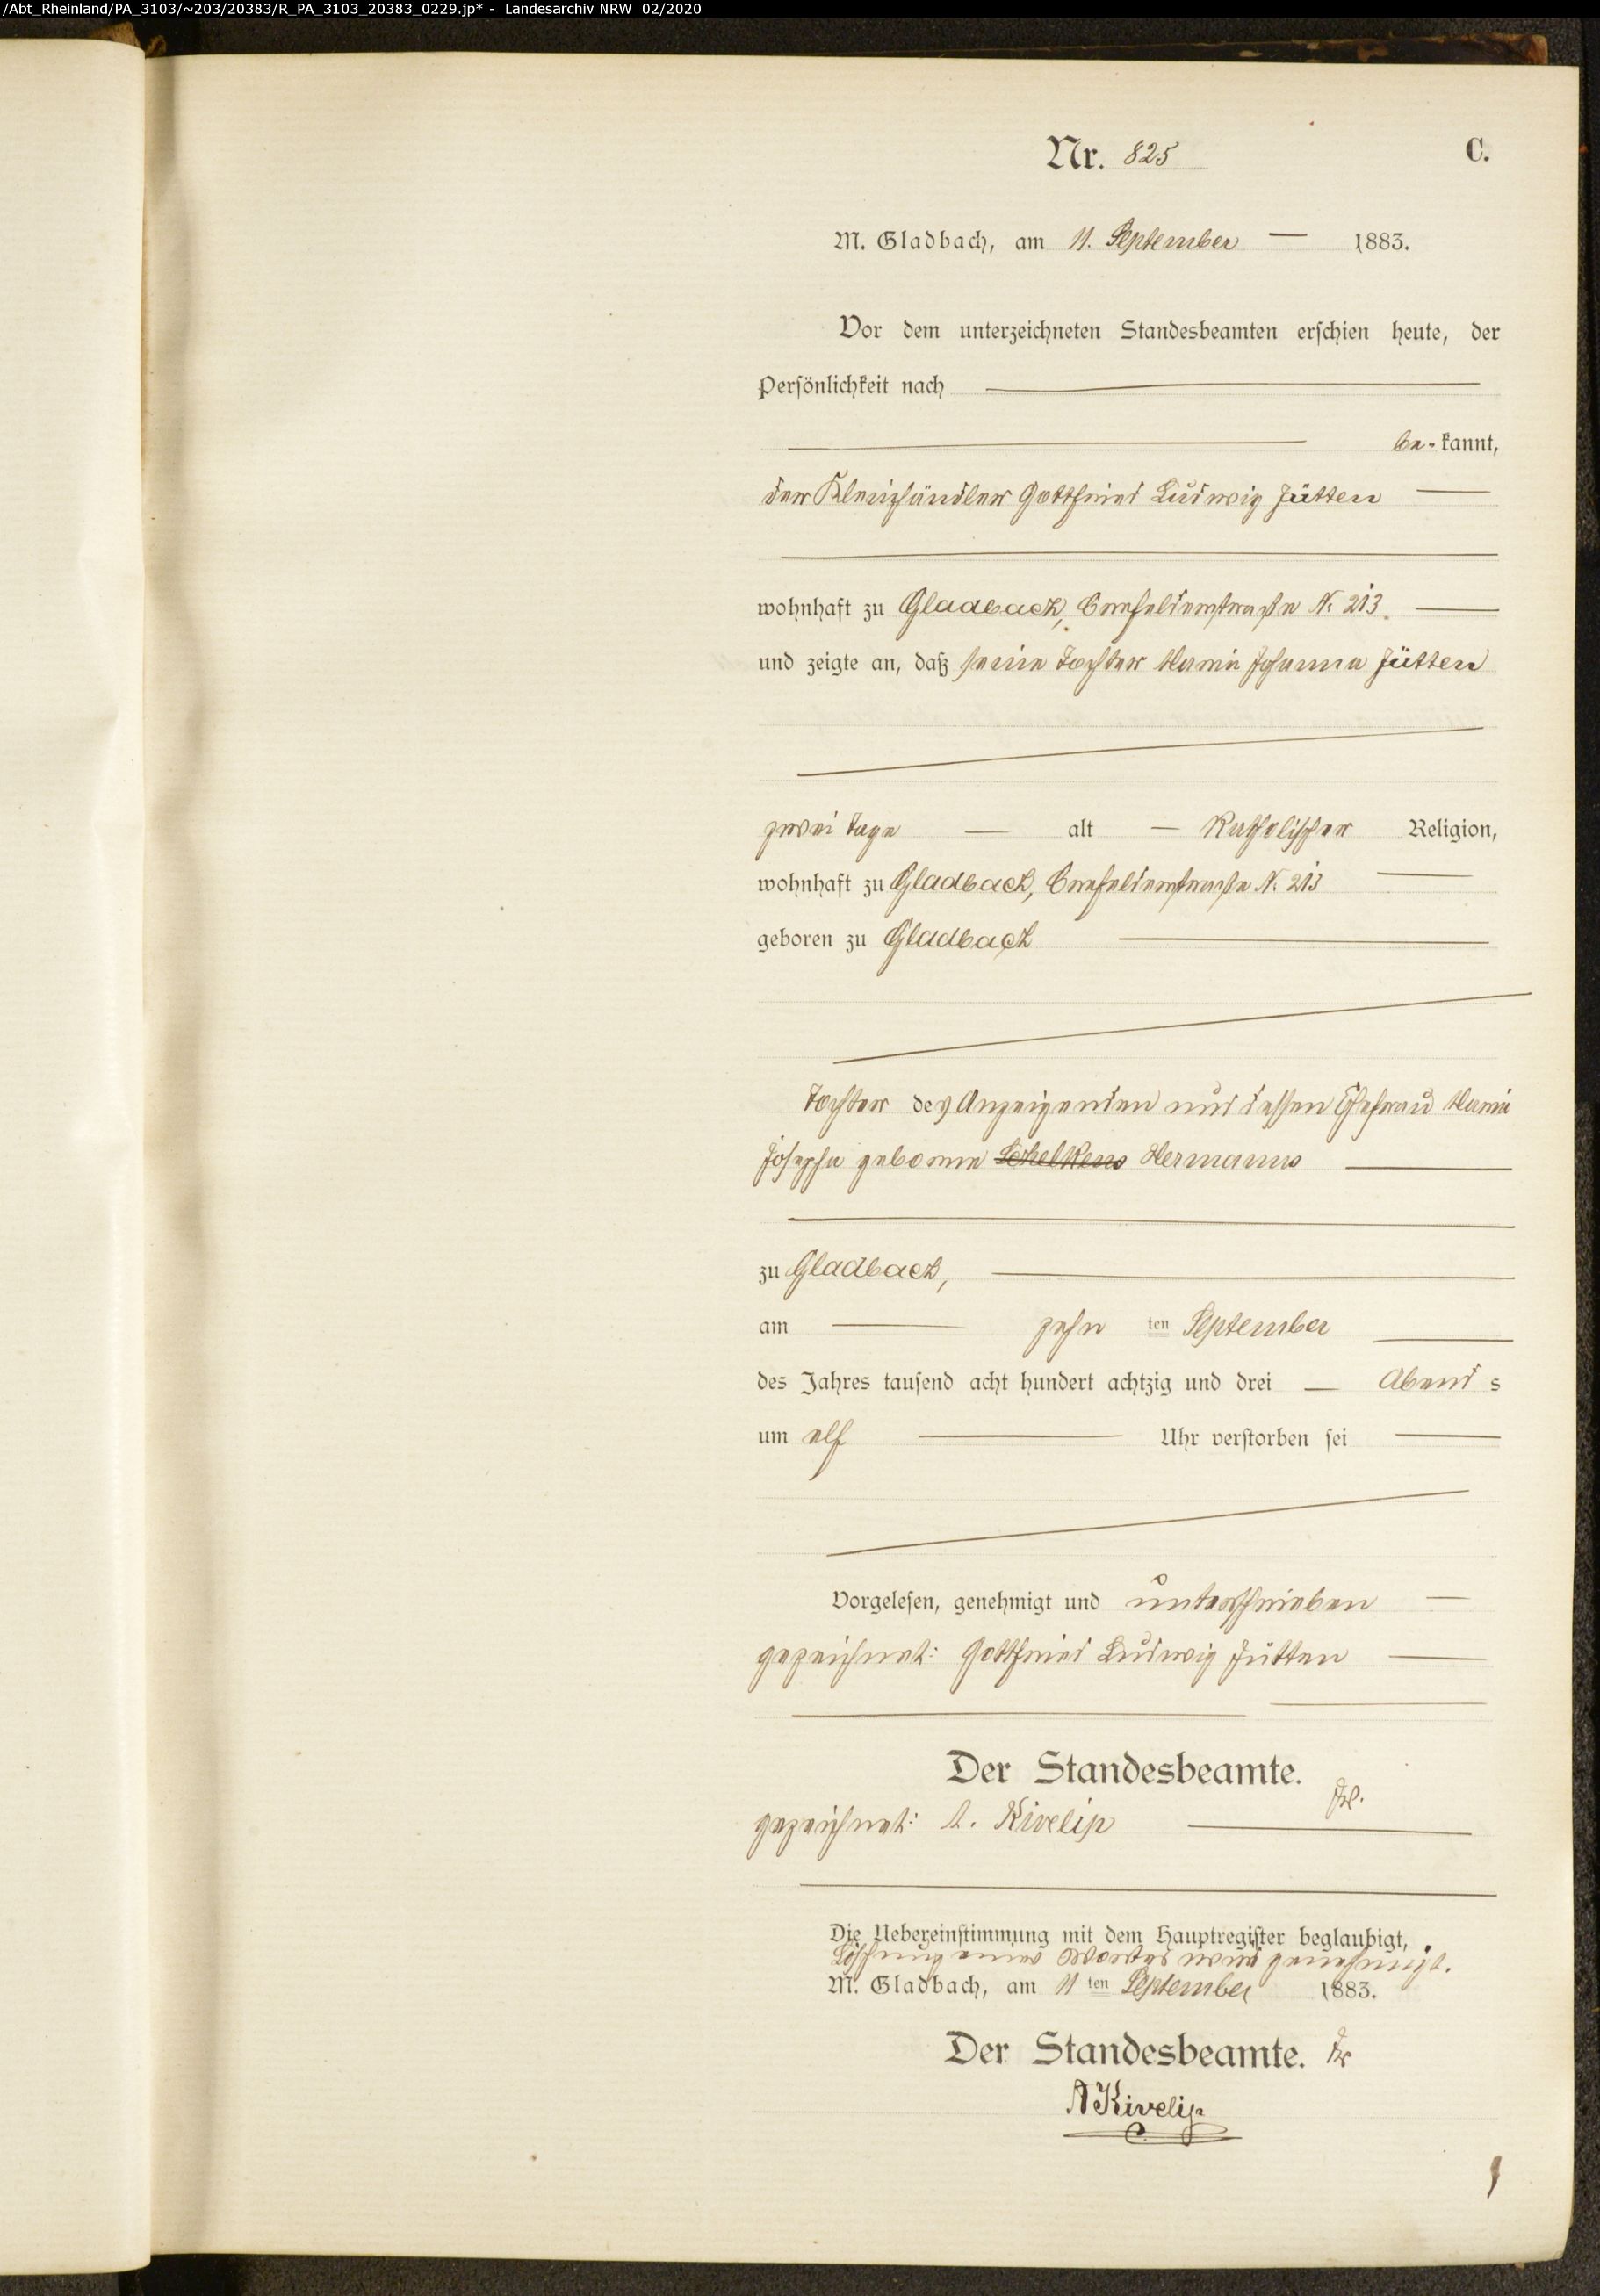 /Abt_Rheinland/PA_3103/~203/20383/R_PA_3103_20383_0229.jp* - Landesarchiv NRW 02/2020
Nr. 825
C.
M. Gladbach, am 11. September 1883.
Vor dem unterzeichneten Standesbeamten erschien heute, der
Persönlichkeit nach
be-kannt,
der Kleinhändler Gottfried Ludwig Jütten
wohnhaft zu Gladbach, Crefelderstraße N. 213
und zeigte an, daß seine Tochter Maria Johanna Jütten
zwei Tage alt Katholischer Religion,
wohnhaft zu Gladbach, Crefelderstraße N. 213
geboren zu Gladbach
Tochter des Anzeigenden und dessen Ehefrau Maria
Josepha geborene Schelkens Hermanns
zu Gladbach,
am zehn ten September
des Jahres tausend acht hundert achtzig und drei Abend s
um elf Uhr verstorben sei
Vorgelesen, genehmigt und unterschrieben
gezeichnet: Gottfried Ludwig Jütten
Der Standesbeamte.
gezeichnet: A. Kivelip
Die Uebereinstimmung mit dem Hauptregister beglaubigt,
Löschung eines Wortes wird genehmigt.
M. Gladbach, am 11 ten September 1883.
Der Standesbeamte.
A Kivelip